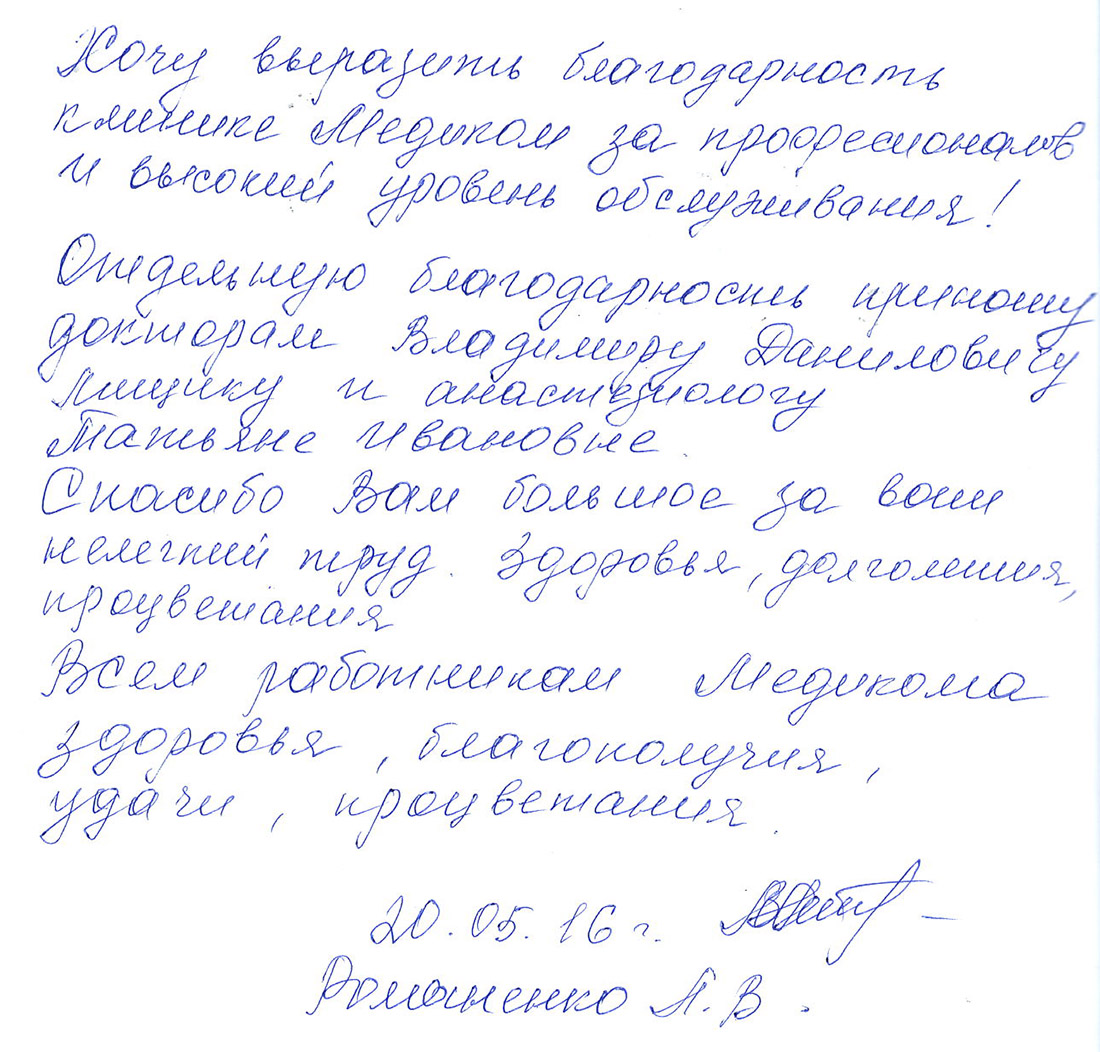 Хочу выразить благодарность
клинике Медиком за професионалов
и высокий уровень обслуживания!
Отдельную благодарность приношу
докторам Владимиру Даниловичу
Лищику и анастезиологу
Татьяне Ивановне.
Спасибо Вам большое за ваш
нелегкий труд. Здоровья, долголетия,
процветания
Всем работникам Медикома
здоровья, благополучия,
удачи, процветания.
20.05.16 г.
Романенко Л.В.